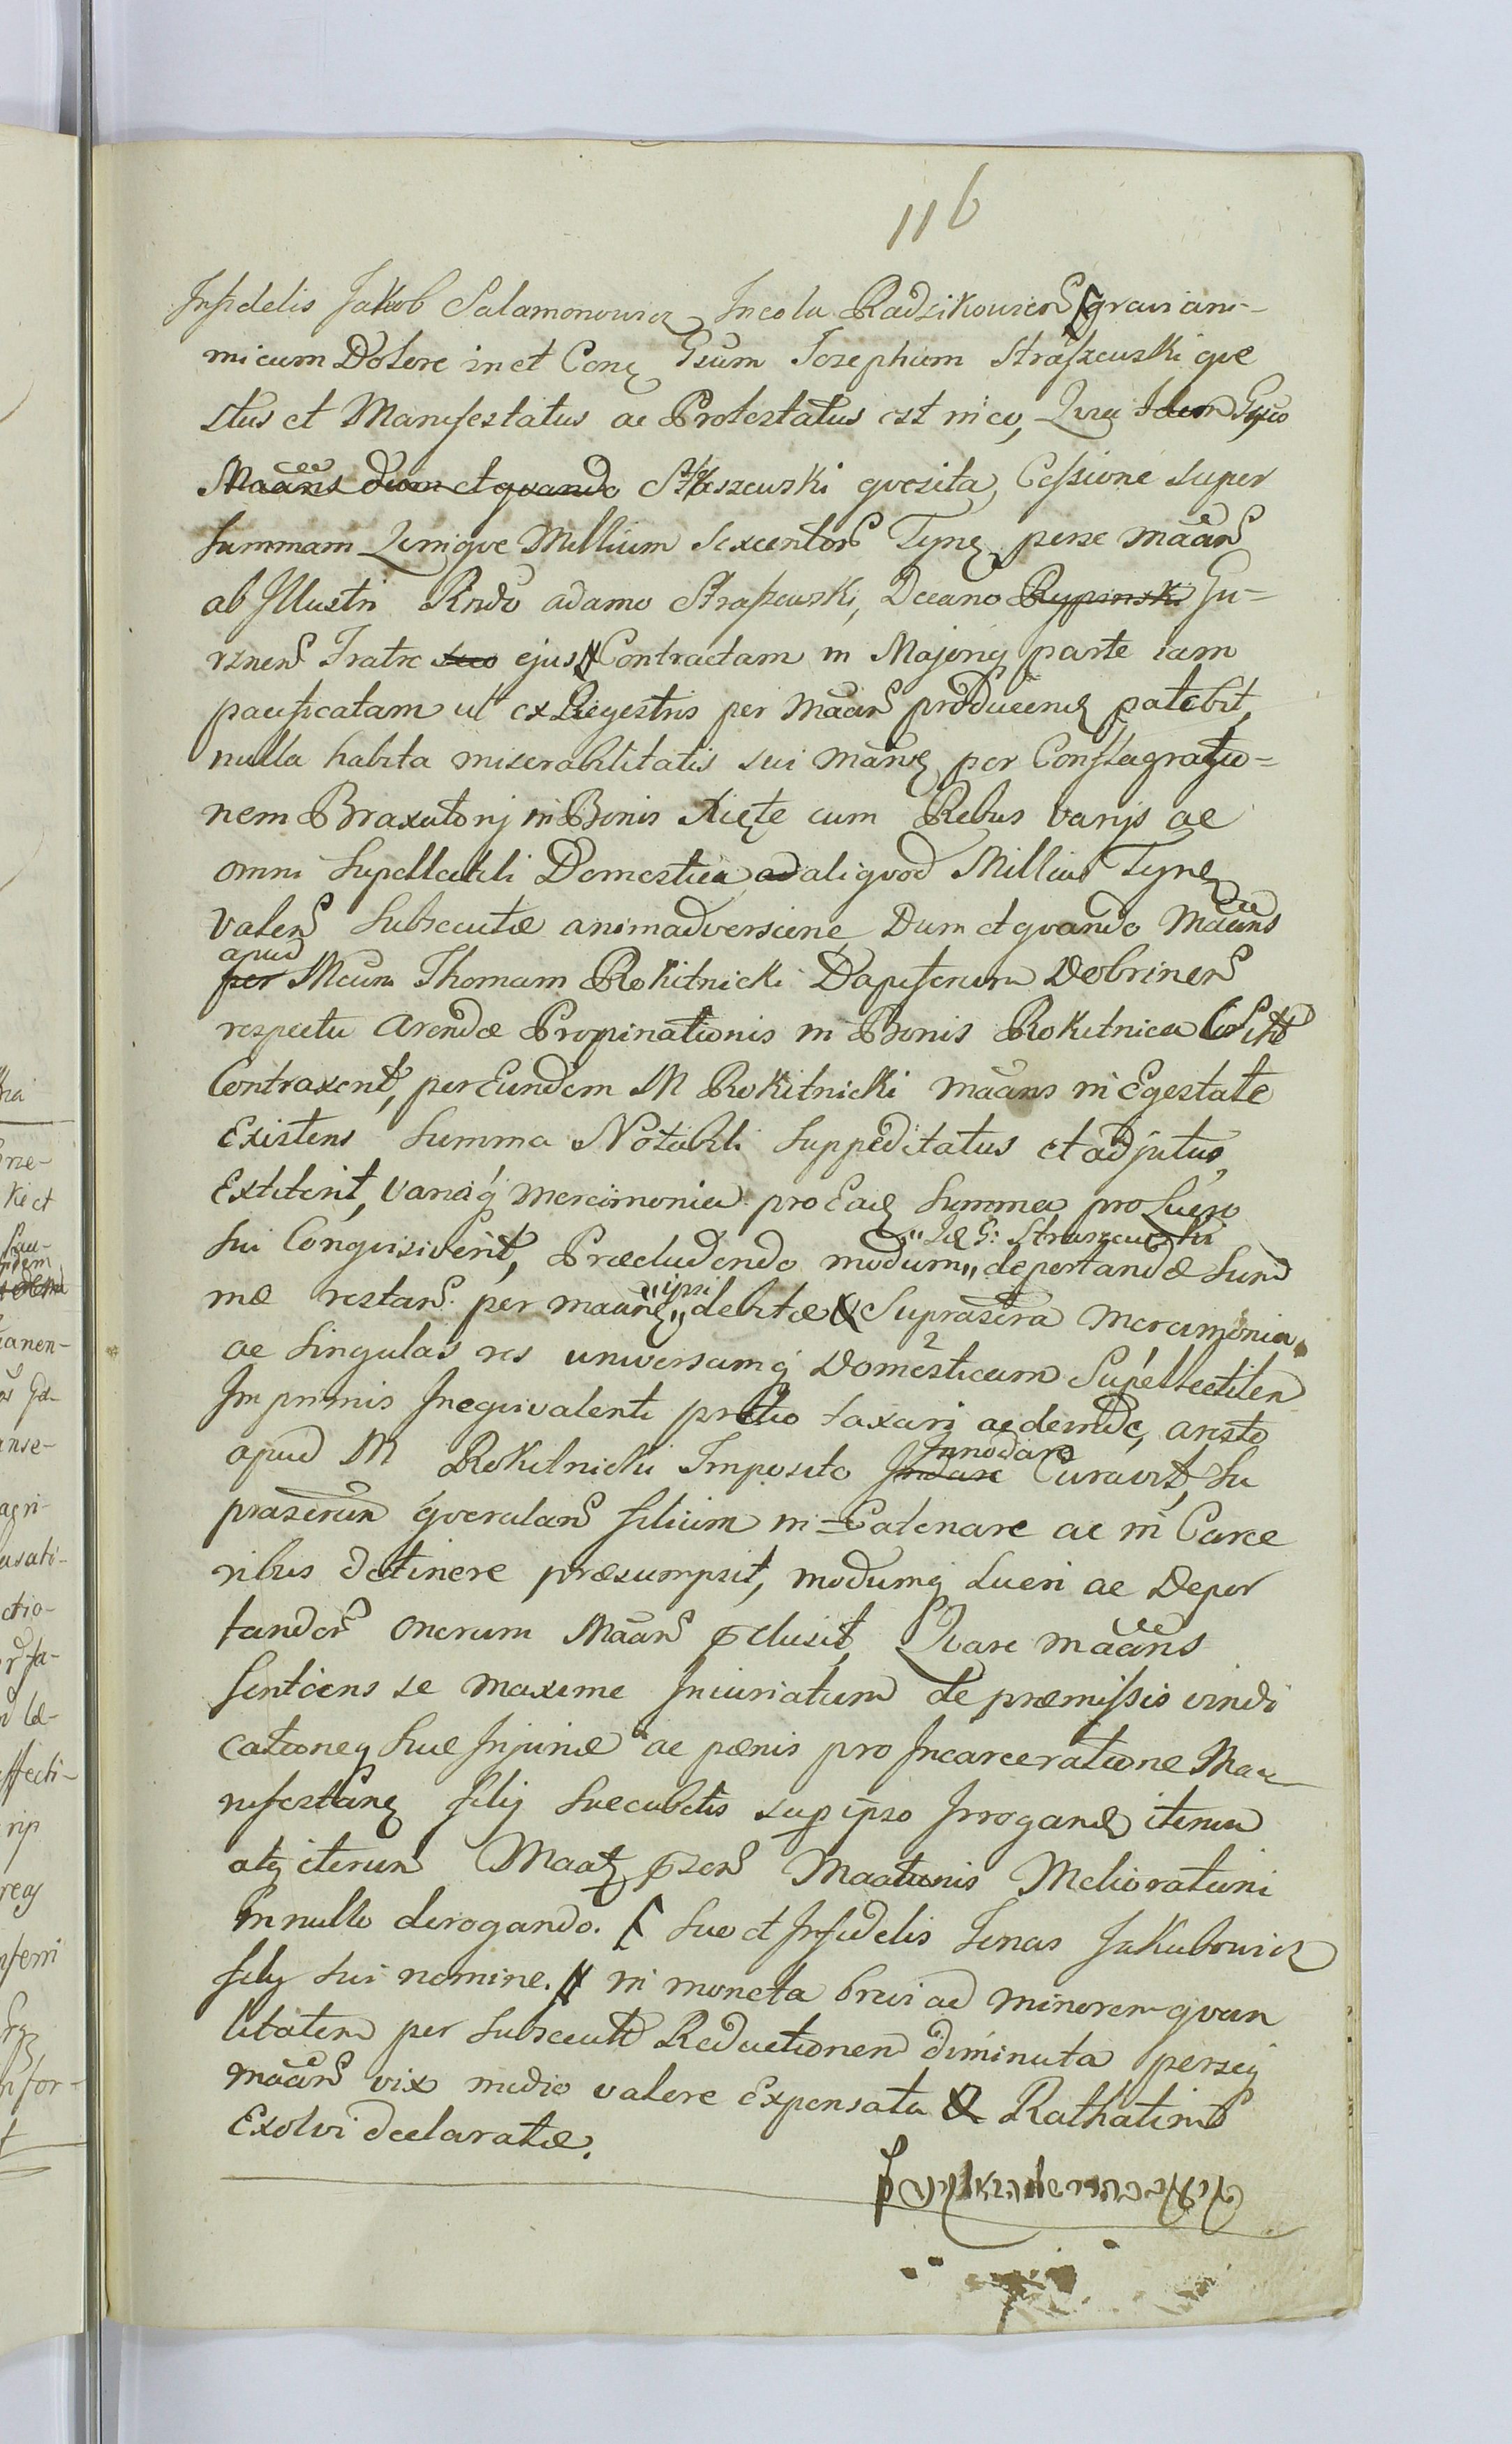 116
Infidelis Jakob Salamonowicz Incola Radzikoviens ſ gravi ani-
mi cum Dolore in et Conq Gsum Josephum Straszewski que
stus et Manifestatus ac Protestatus est in eo, Quia Idem Gsus
Maans dum et quando Straszewski quesita, Cessione super
summam Quinque Millium Sexcentor Tynf perse maan
ab Illustri Rndo adamo Straszewski, Decano Rypinski Gu-
rznen Fratre suo ejus # Contractam in Majori parte iam
pacificatam ut ex Regestris per Maan producend patebit,
nulla habita miserabilitatis sui manq per Conflagratio=
nem Braxatorij in Bonis Kięte cum Rebus varijs ac
omni Supellectili Domestica ad aliquod Millia Tynf
valen Subsecutæ animadversione Dum et quando Maans
apud
per Mcum Thomam Rokitnicki Dapiferum Dobrinen
respectu Arendæ Propinationis in Bonis Rokitnica
Contraxerit, per Eundem M Rokitnicki maans in Egestate
Existens Summa Notabili Suppeditatus et adjutus
Extiterit, variaq mercimonia pro Eadq Summa pro Lucro
"Idē G: Straszewski
sui Conquisiverit, Præcludendo modum "deportandæ Sum
"ipsi
mæ restan per maanq "debitæ & Suprascra mercimonia
2
ac singulas res universamq Domesticam Supellectilem
Imprimis Inequivalenti pretio taxari ac deinde, aresto
Innodare
apud M Rokitnicki Imposito Indare Curavit, Su
prascrum querulan filium in =Catenare ac in Carce
ribus detinere præsumpsit, modumq Lueri ac Depor
tandor onerum Maan pclusit, Quare maans
sentiens se maxime Iniuriatum de præmissis vindi
cationeq suæ Injuriæ ac pænis pro Incarceratione Ma
nifestanq filij Succubitis sup ipso Irrogand iterum
atq iterum Maatq pzen Maationis Meliorationi
In nullo derogando. ſ suo et Infidelis Jonas Jakubowicz
filij sui nomine. # in moneta brevi ad minorem quan
titatem per subsecut Reductionem diminuta perseq
maan vix medio valore Expensata & Rathatim
Exolvi declaratæ.